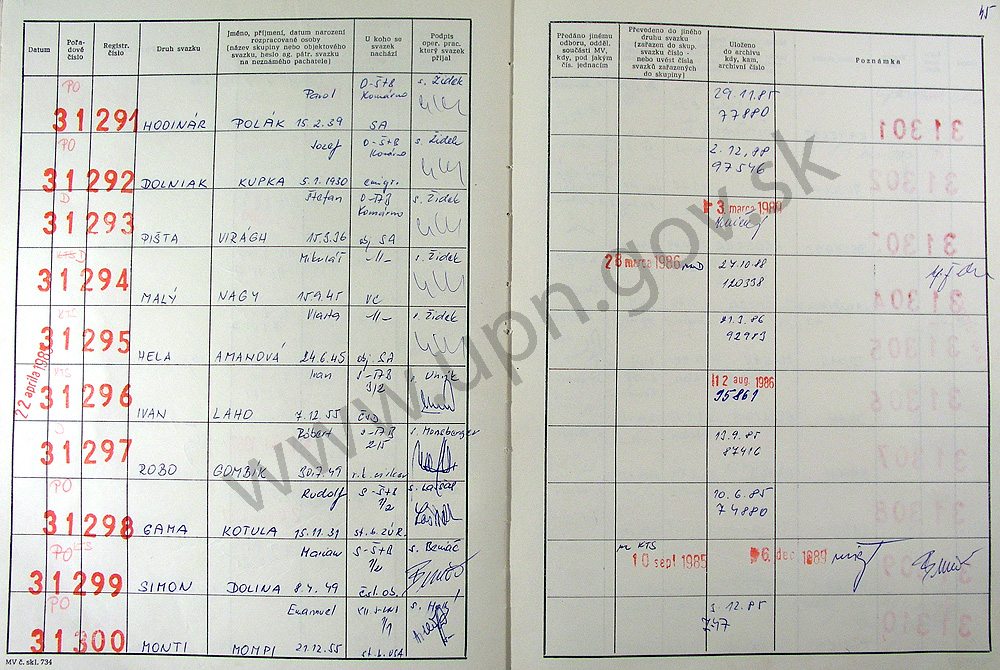 45
Datum
Pořa-
dové
číslo
Registr.
číslo
Druh svazku
Jméno, příjmení, datum narození
rozpracované osoby
(název skupiny nebo objektového
svazku, heslo ag. pátr. svazku
na neznámého pachatele)
U koho se
svazek
nachází
Podpis
oper. prac.
který svazek
přijal
Předáno jinému
odboru, odděl.
součásti MV,
kdy, pod jakým
čís. jednacím
Převedeno do jiného
druhu svazku
(zařazen do skup.
svazku číslo -
nebo uvést čísla
svazků zařazených
do skupiny)
Uloženo
do archivu
kdy, kam,
archivní číslo
Poznámka
PO Pavol O-Š+B s. Židek
Komárno 29.11.85
31 291 HODINÁR POLÁK 15.2.39 SA 77880
PO Jozef O-Š+B s. Židek
Komárno 2.12.88
31 292 DOLNIAK KUPKA 5.1.1930 emigr. 97546
D Štefan O-17B s. Židek
Komárno 3. marca 1989
31 293 PIŠTA VIRÁGH 15.3.36 obj. SA
KTS D Mikuláš -11- s. Židek
28 marca 1986 27.10.88
31 294 MALÝ NAGY 15.9.45 VC 120338
KTS Vlasta -11- s. Židek
21.3.86
31 295 HELA AMANOVÁ 24.6.45 obj. SA 92983
22 apríla 1985
KTS Ivan
3/2 12 aug. 1986
31 296 IVAN LAHO 7.12.55 95861
Róbert s. Monsberger
2/5 13.9.85
31 297 ROBO GOMBIK 30.7.49 87416
PO Rudolf S-Š+B
1/2 10.6.85
31 298 GAMA KOTULA 15.11.31 st. b. ZÚR. 74880
PO KTS Marian S-Š+B s. Benáč
1/2 KTS
10 sept 1985 6. dec 1989
31 299 SIMON DOLINA 8.4.49 čsl. ob.
PO Emanuel
1/1 5.12.85
31 300 MONTI MOMPI 21.12.55 st. b. USA 747
31301
31302
31304
31305
31307
31308
31309
31310
www.upn.gov.sk
MV č. skl. 734